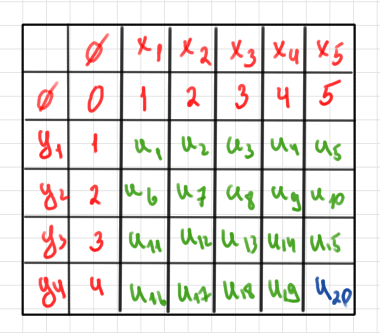 ∅ x₁ x₂ x₃ x₄ x₅
∅ 0 1 2 3 4 5
y₁ 1 u₁ u₂ u₃ u₄ u₅
y₂ 2 u₆ u₇ u₈ u₉ u₁₀
y₃ 3 u₁₁ u₁₂ u₁₃ u₁₄ u₁₅
y₄ 4 u₁₆ u₁₇ u₁₈ u₁₉ u₂₀